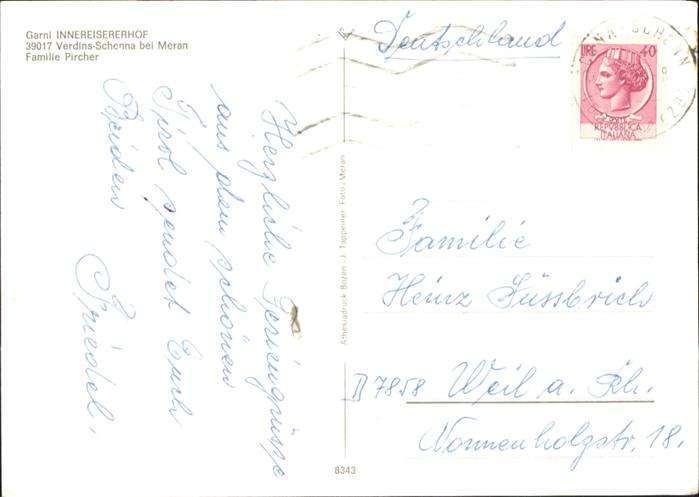 Garni INNEREISERERHOF
39017 Verdins-Schenna bei Meran
Familie Pircher
Herzliche Feriengrüsse
aus dem schönen
Tirol sendet Euch
Beiden
Friedel.
Athesiadruck Bozen - J. Tappeiner Foto, Meran
8343
Deutschland
LIRE 40
REPVBBLICA
ITALIANA
Familie
Heinz Füssbrich
D 7858 Weil a. Rh.
Nonnenholzstr. 18.